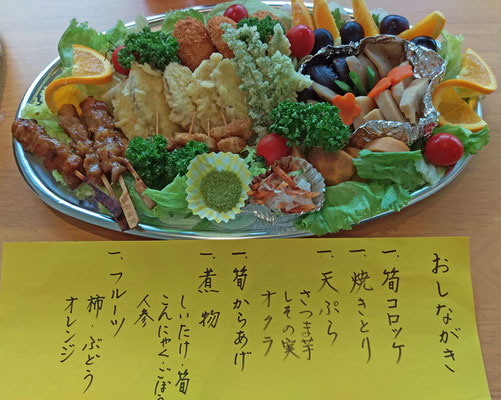 おしながき
一、筍コロッケ
一、焼きとり
一、天ぷら
さつま芋
しその実
オクラ
一、筍からあげ
一、煮物
しいたけ・筍
こんにゃく・ごぼう
人参
一、フルーツ
柿・ぶどう
オレンジ